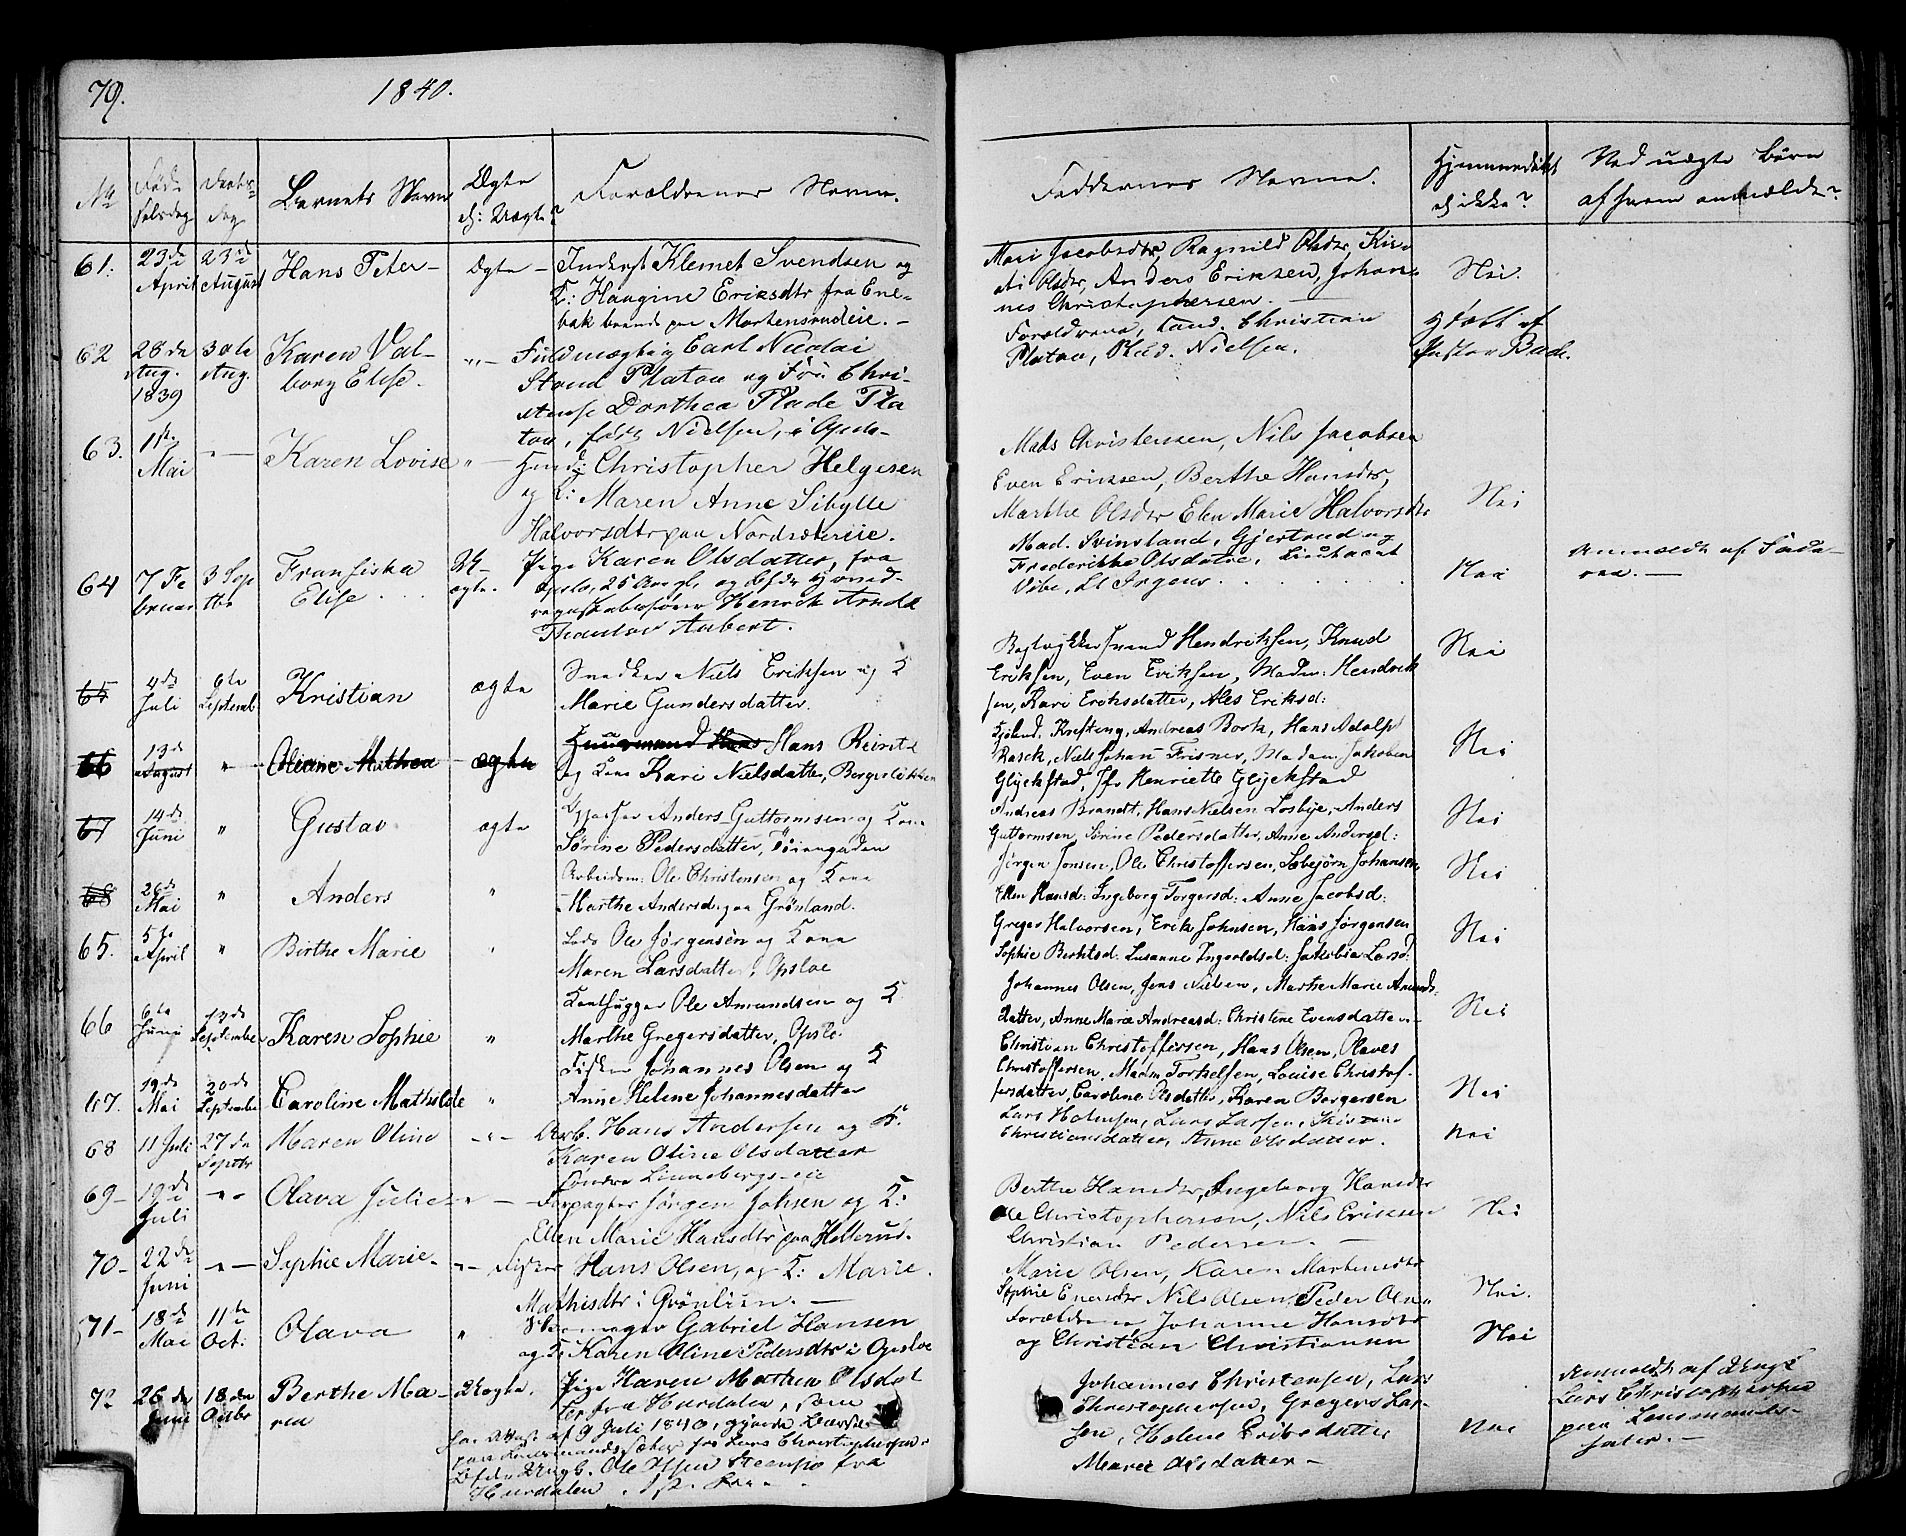 79.
1840.
No
Føde
selsdag
Daabs-
dag
Barnets Navn
Ægte
el: Uægte?
Forældrenes Navne.
Faddernes Navne.
Hjemmedøbt
el ikke?
Ved uægte Børn
af hvem anmeldt?
61.
23de
April
23de
August
Hans Peter-
Ægte -
Inderst Klemet Svendsen og
K: Haagine Eriksdtr fra Ene-
bak boende paa Mortensrudeie. -
Mari Jacobsdtr, Ragnild Olsdtr, Kir-
sti Olsdtr, Anders Eriksen, Johan-
nes Christophersen. -
Nei.
62
28de
Aug.
1839
30te
Aug.
Karen Val-
borg Elise.
"-
Fuldmægtig Carl Nicolai
Stoud Platou og Fru Chri-
stense Dorthea Plade Pla
tou, født Nielsen, i Opslo-
Forældrene, Cand. Christian
Platou, Stud. Nielsen.
døbt af
Pastor Bade.
63.
1ste
Mai
" -
Karen Lovise
" -
Huusm: Christopher Helgesen
og K: Maren Anne Sibylle
Halvorsdtr paa Nordsætereie.
Mads Christensen, Nils Jacobsen
Even Eriksen, Berthe Hansdtr,
Marthe Olsdtr Elen Marie Halvorsdtr
Nei
64
7 Fe
bruar
3 Sep
tbr
Fransiska
Elise . . .
Uægte.
Pige Karen Olsdatter, fra
Opslo, 25 Aar gl. og
Henrik Arnold
Thaulov Aubert.
Mad. Svinsland, Gjertrud og
Frederikke Olsdatre, Lieutnant
Vibe, Lt Irgens. . . . .
Nei
Anmeldt af Fade-
ren. -
65
4de
Juli
6te
Septemb
Kristian
ægte
Snedker Niels Eriksen og K
Marie Gundersdatter.
Bogtrykkersvend Hendriksen, Knud
Eriksen, Even Eriksen, Madm: Hendrik
sen, Kari Eriksdatter, Ales Eriksd:
Nei
66
13de
August
"
Oliane Mathea
ægte
Huusmand Hans Hans Reintz
og Kone Kari Nielsdatter, Bergsløkken
Kjøbmd. Krefting, Andreas Bork, Hans Adolf
Rasck, Niels Johan Frisner, Madam Jakoben
Glyckstad, Jfr Henriette Glyckstad
Nei
67
14de
Juni
"
Gustav.
ægte
Anders Guttormsen og Kone
Sørine Pedersdatter, Tøiengaden
Andreas Brandt, Hans Nielsen Losbye, Anders
Guttormsen, Sørine Pedersdatter, Anne Andersd:
Nei
68
26de
Mai
"
Anders
"
Arbeidsm: Ole Christensen og Kone
Marthe Andersd. paa Grønland.
Jørgen Jonsen, Ole Christoffersen, Sæbejörn Johansen
Ellen Hansd: Ingeborg Torgersd: Anne Jacobsd:
Nei
65.
5te
April
"
Birthe Marie
"
Lods Ole Jørgensen og Kone
Maren Larsdatter, Opsloe
Greger Halvorsen, Erik Johnsen, Hans Jørgensen
Sophie Berhtsd: Susanne Ingvoldsd: Jakobia Larsd:
Nei
66
6te
Juni
13de
September
Karen Sophie
"
Ole Amundsen og K
Marthe Gregersdatter, Opslo.
Johannes Olsen, Jens Nielsen, Marthe Marie Amunds-
datter, Anne Marie Andreasd: Christine Evensdatter
Nei
67.
19de
Mai
20de
September
Caroline Mathilde
"
Fisker Johannes Olsen og K
Anne Helene Johannesdatter
Christian Christoffersen, Hans Olsen, Olaves
Christoffersen, Madm Torkelsen, Louise Christof-
fersdatter, Caroline Olsdatter, Karen Borgersen
Nei
68
11 Juli
27de
Septbr
Maren Oline
- " -
Arb. Hans Andersen og K.
Karen Oline Olsdatter
Søndre
Lars Halvorsen, Lars Larsen, Kistine
Christiansdatter, Anne Olsdatter.
Nei
69-
19de
Juli
" "
Olava Julie
" -
Forpagter Jørgen Johsen og K:
Elen Marie Hansdtr paa Hellerud.
Berthe Hansdtr, Ingeborg Hansdtr
Ole Christophersen, Nils Eriksen
Christian Pedersen. -
Nei
70-
22de
Juni
" -
Sophie Marie-
" -
Fisker Hans Olsen, og K: Marie
Mathisdtr i Grönlien. -
Marie Olsen, Karen Mortensdtr
Sophie Enersdtr Nils Olsen, Peder Olsen
Nei.
71-
18de
Mai
11te
Oct:
Olava
"
Gabriel Hansen
og K Karen Oline Pedersdtr i Opsloe
Forældrene, Johanne Hansdtr
og Christian Christiansen
Nei
72
26de
Juni
18de
Octbr
Berthe Ma-
ren
Uægte.
Pige Karen Mathea Olsdat
ter fra Hurdalen, som
for Attest af 9 Juli 1840,
paa Lensmandssæter for Lars Christophersen.
Ungk. Ole Olsen Steensjø fra
Hurdalen.
Johannes Christensen, Lars
Christophersen, Gregers Lar-
sen, Helene Eriksdatter
Maren Olsdatter -
Nei
Anmeldt af Ungk
Lars Christophersen
paa Lensmands-
sæter. -